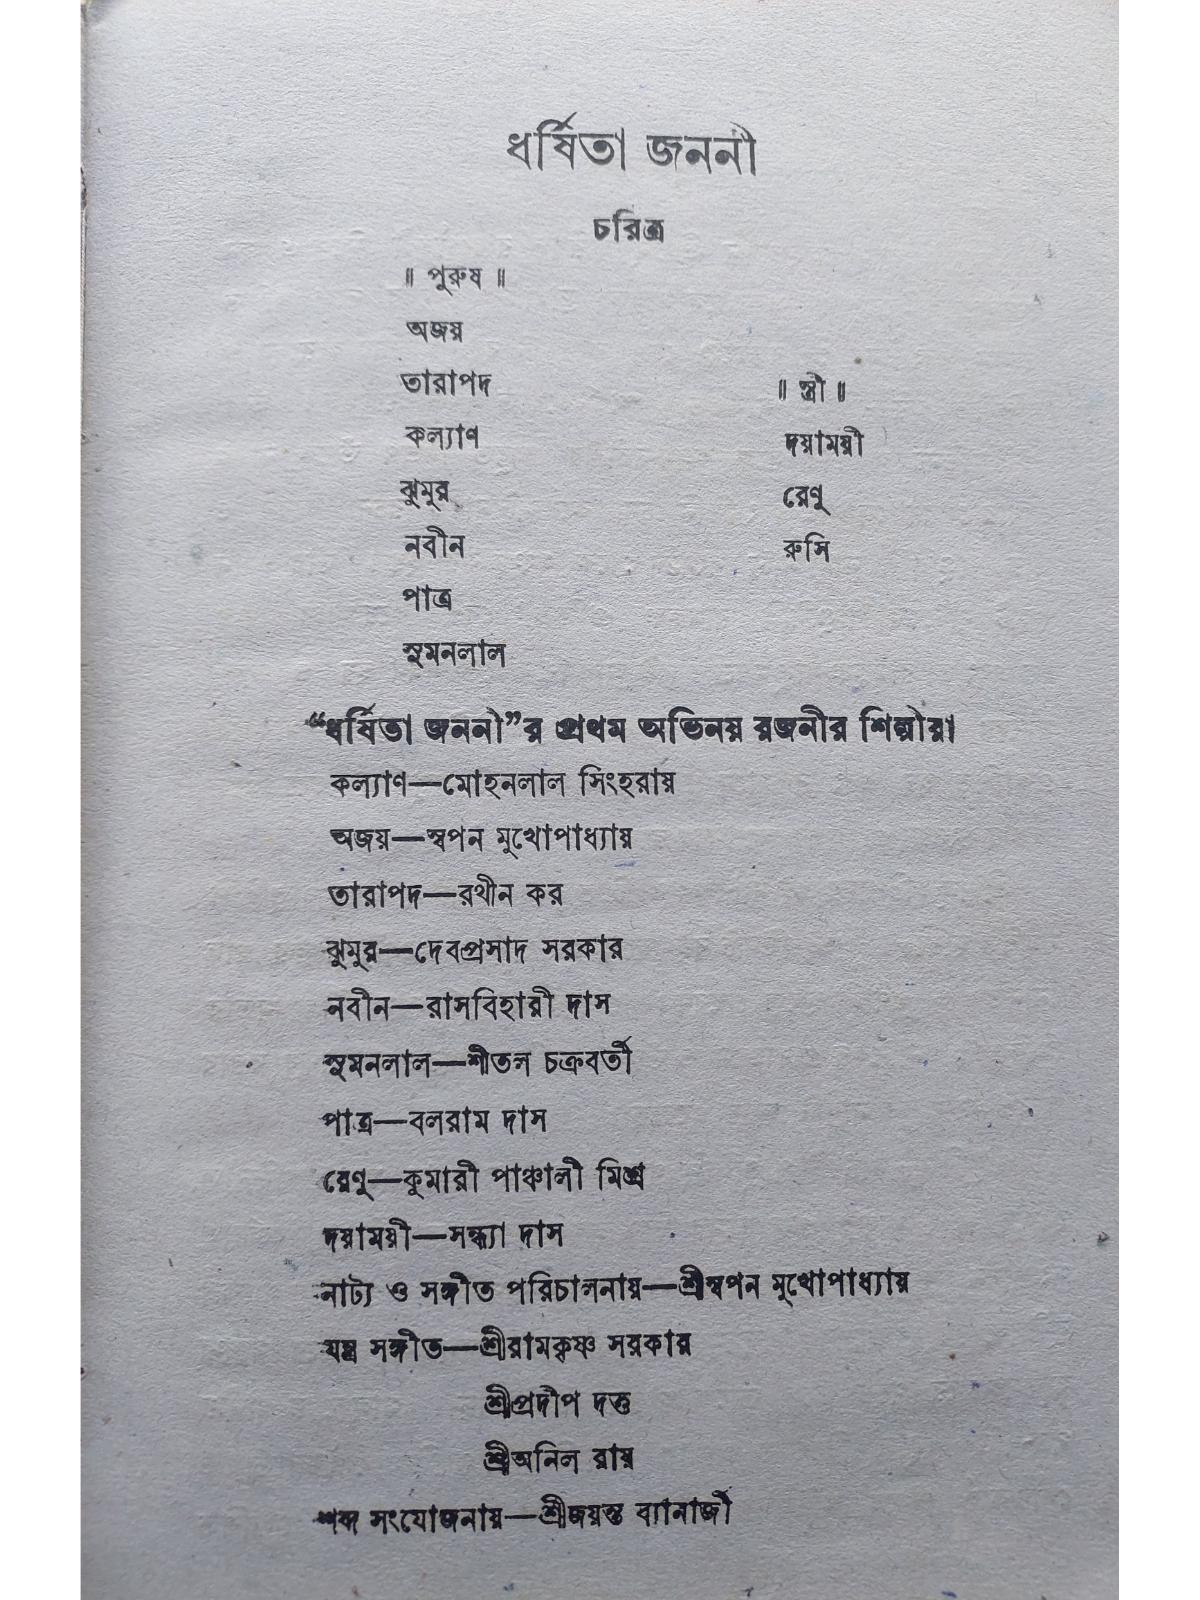 ধর্ষিতা জননী
চরিত্র
॥ পুরুষ ॥
অজয়
তারাপদ
কল্যাণ
ঝুমুর
নবীন
পাত্র
সুমনলাল
॥ স্ত্রী ॥
দয়াময়ী
রেণু
রুসি
“ধর্ষিতা জননী”র প্রথম অভিনয় রজনীর শিল্পীরা
কল্যাণ—মোহনলাল সিংহরায়
অজয়—স্বপন মুখোপাধ্যায়
তারাপদ—রথীন কর
ঝুমুর—দেবপ্রসাদ সরকার
নবীন—রাসবিহারী দাস
সুমনলাল—শীতল চক্রবর্তী
পাত্র—বলরাম দাস
রেণু—কুমারী পাঞ্চালী মিশ্র
দয়াময়ী—সন্ধ্যা দাস
নাট্য ও সঙ্গীত পরিচালনায়—শ্রীস্বপন মুখোপাধ্যায়
যন্ত্র সঙ্গীত—শ্রীরামকৃষ্ণ সরকার
শ্রীপ্রদীপ দত্ত
শ্রীঅনিল রায়
শব্দ সংযোজনায়—শ্রীজয়ন্ত ব্যানার্জী